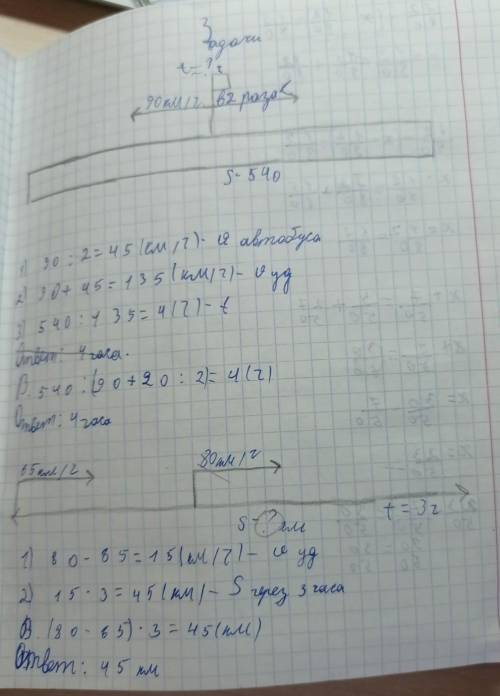 Задачи
t=? ч
90 км/ч в 2 раза <
S-540
1) 90 : 2 = 45 (км/ч) - v автобуса
2) 90 + 45 = 135 (км/ч) - v уд
3) 540 : 135 = 4 (ч) - t
Ответ: 4 часа.
В. 540 : (90 + 90 : 2) = 4 (ч)
Ответ: 4 часа
65 км/ч 80 км/ч
S-? км t = 3 ч
1) 80 - 65 = 15 (км/ч) - v уд
2) 15 · 3 = 45 (км) - S через 3 часа
В. (80 - 65) · 3 = 45 (км)
Ответ: 45 км